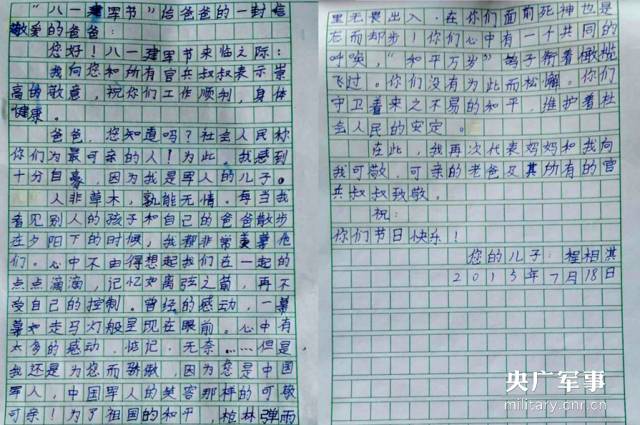 “八一建军节”给爸爸的一封信
敬爱的爸爸：
您好！八一建军节来临之际：
我向您和所有官兵叔叔表示崇
高的敬意，祝你们工作顺利，身体
健康。
爸爸，您知道吗？社会人民称
你们为最可亲的人！为此。我感到
十分自豪，因为我是军人的儿子。
人非草木，孰能无情。每当我
看见别人的孩子和自己的爸爸散步
在夕阳下的时候，我都非常羡慕他
们。心中不由得想起我们在一起的
点点滴滴，记忆如离弦之箭，再不
受自己的控制。曾经的感动，一幕
幕如走马灯般呈现在眼前。心中有
太多的感动、惦记、无奈……但是
我还是为您而骄傲，因为您是中国
军人，中国军人的笑容那样的可敬
可亲！为了祖国的和平，枪林弹雨
里无畏出入，在你们面前死神也是
右而却步！你们心中有一个共同的
呼唤，“和平万岁”鸽子衔着橄榄
飞过。你们没有为此而松懈。你们
守卫着来之不易的和平，维护着社
会人民的安定。
在此，我再次代表妈妈和我向
我可敬，可亲的老爸及其所有的官
兵叔叔致敬。
祝：
你们节日快乐！
您的儿子：程相淇
2015年7月18日
央广军事
military.cnr.cn